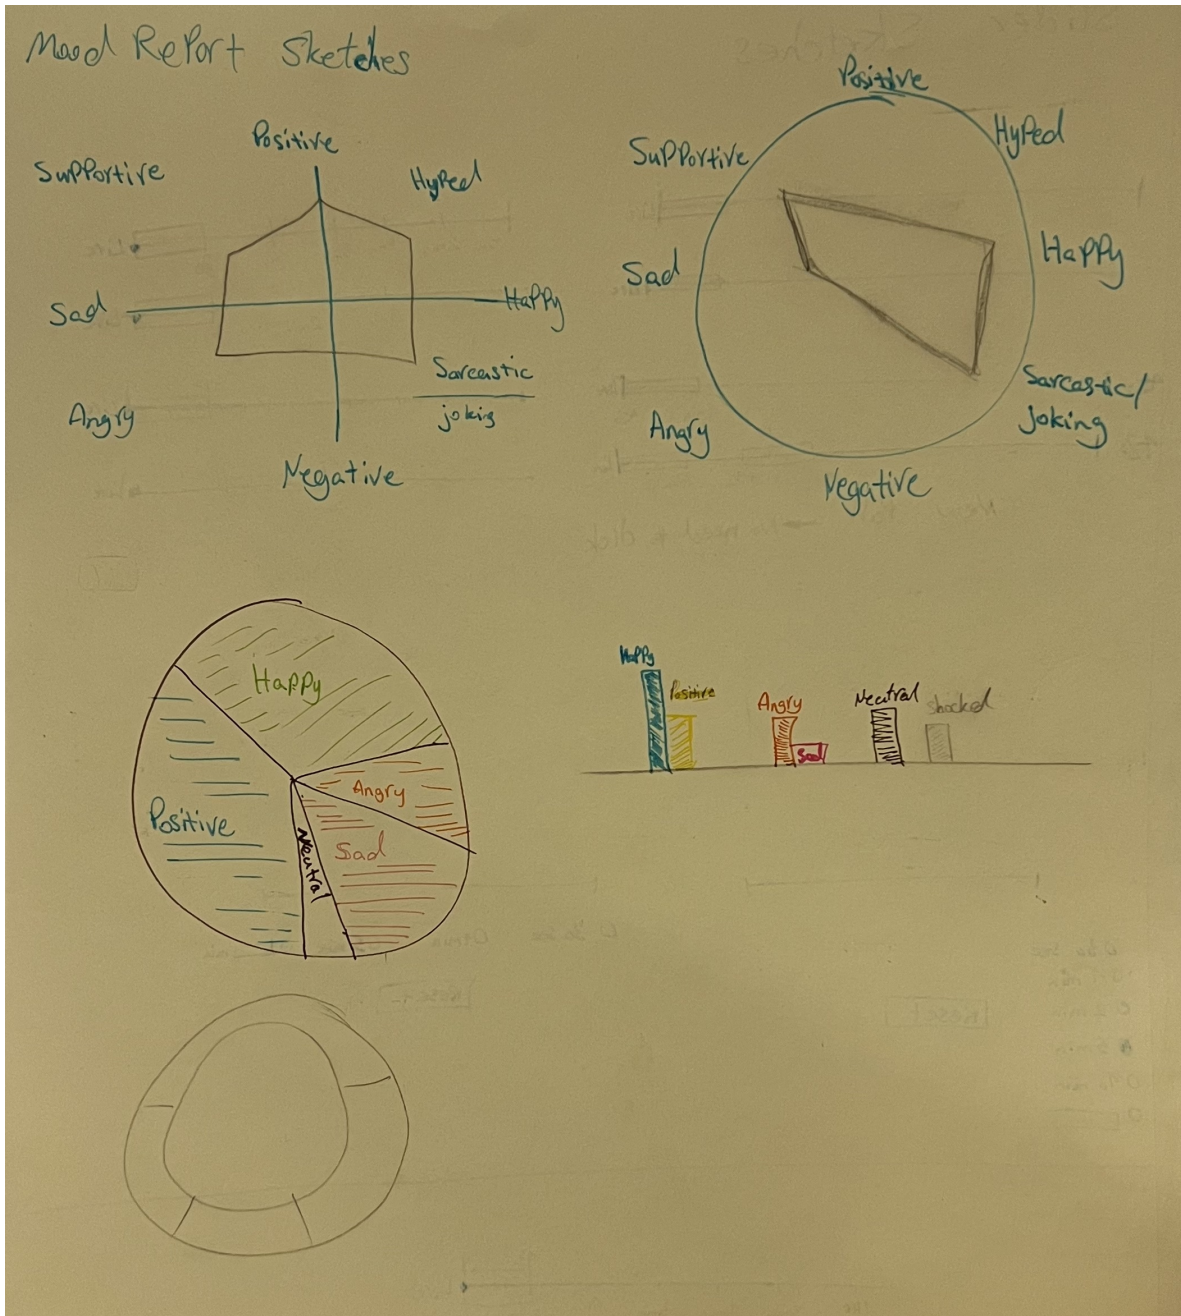 Mood Report Sketches
Positive
Supportive
Hyped
Sad
Happy
Angry
Sarcastic
joking
Negative
Positive
Supportive
Hyped
Sad
Happy
Angry
Sarcastic/
Joking
Negative
Happy
Positive
Angry
Sad
Neutral
Happy
Positive
Angry
Sad
Neutral
Shocked